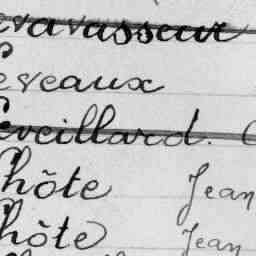 evavasseur
eveaux
eveillard. (
hôte Jean
hôte Jean